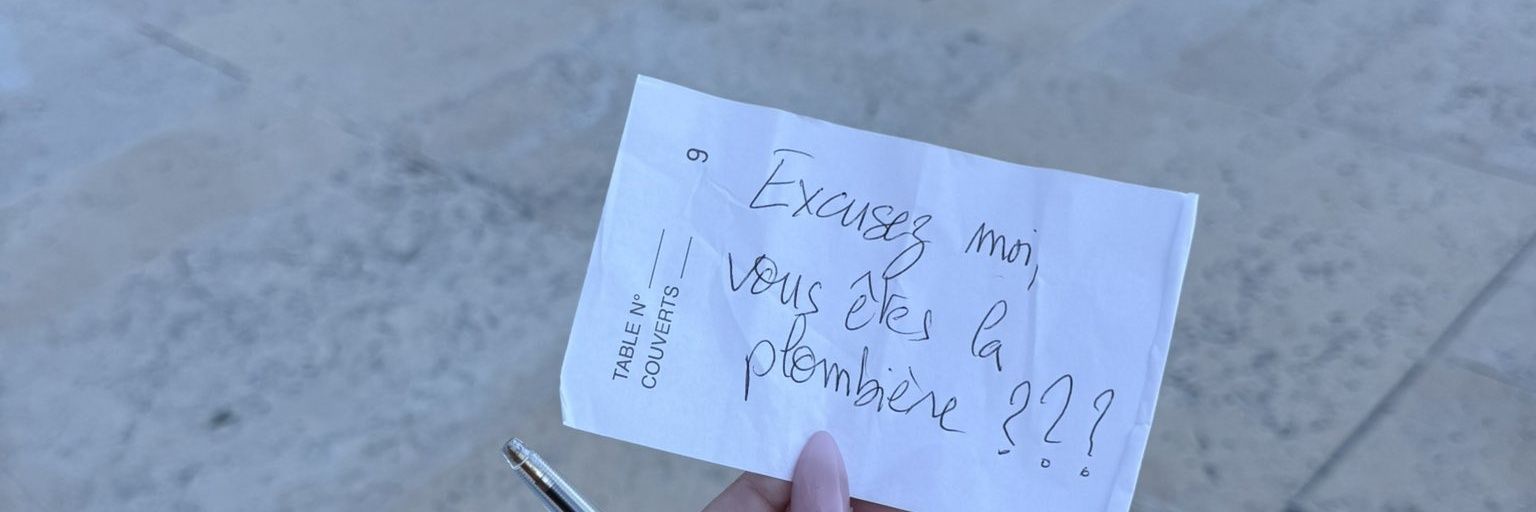 Excusez moi,
vous êtes la
plombière ???
TABLE N° ____
COUVERTS ____
9